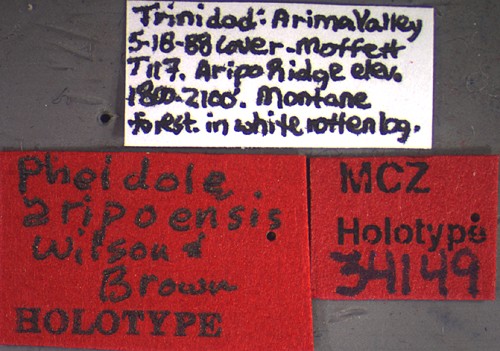 Trinidad: Arima Valley
5-18-88 Cover-Moffett
T117. Aripo Ridge elev.
1800-2100'. Montane
forest. in white rotten log.
Pheidole
aripoensis
Wilson &
Brown
HOLOTYPE
MCZ
Holotype
34149